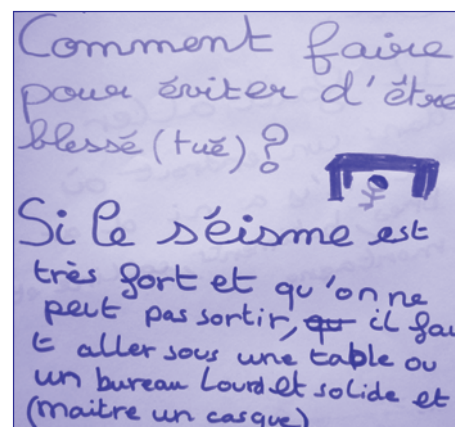 Comment faire
pour éviter d'être
blessé (tué)?
Si le séisme est
très fort et qu'on ne
peut pas sortir, qu il fau
t aller sous une table ou
un bureau lourd et solide et
(maitre un casque)